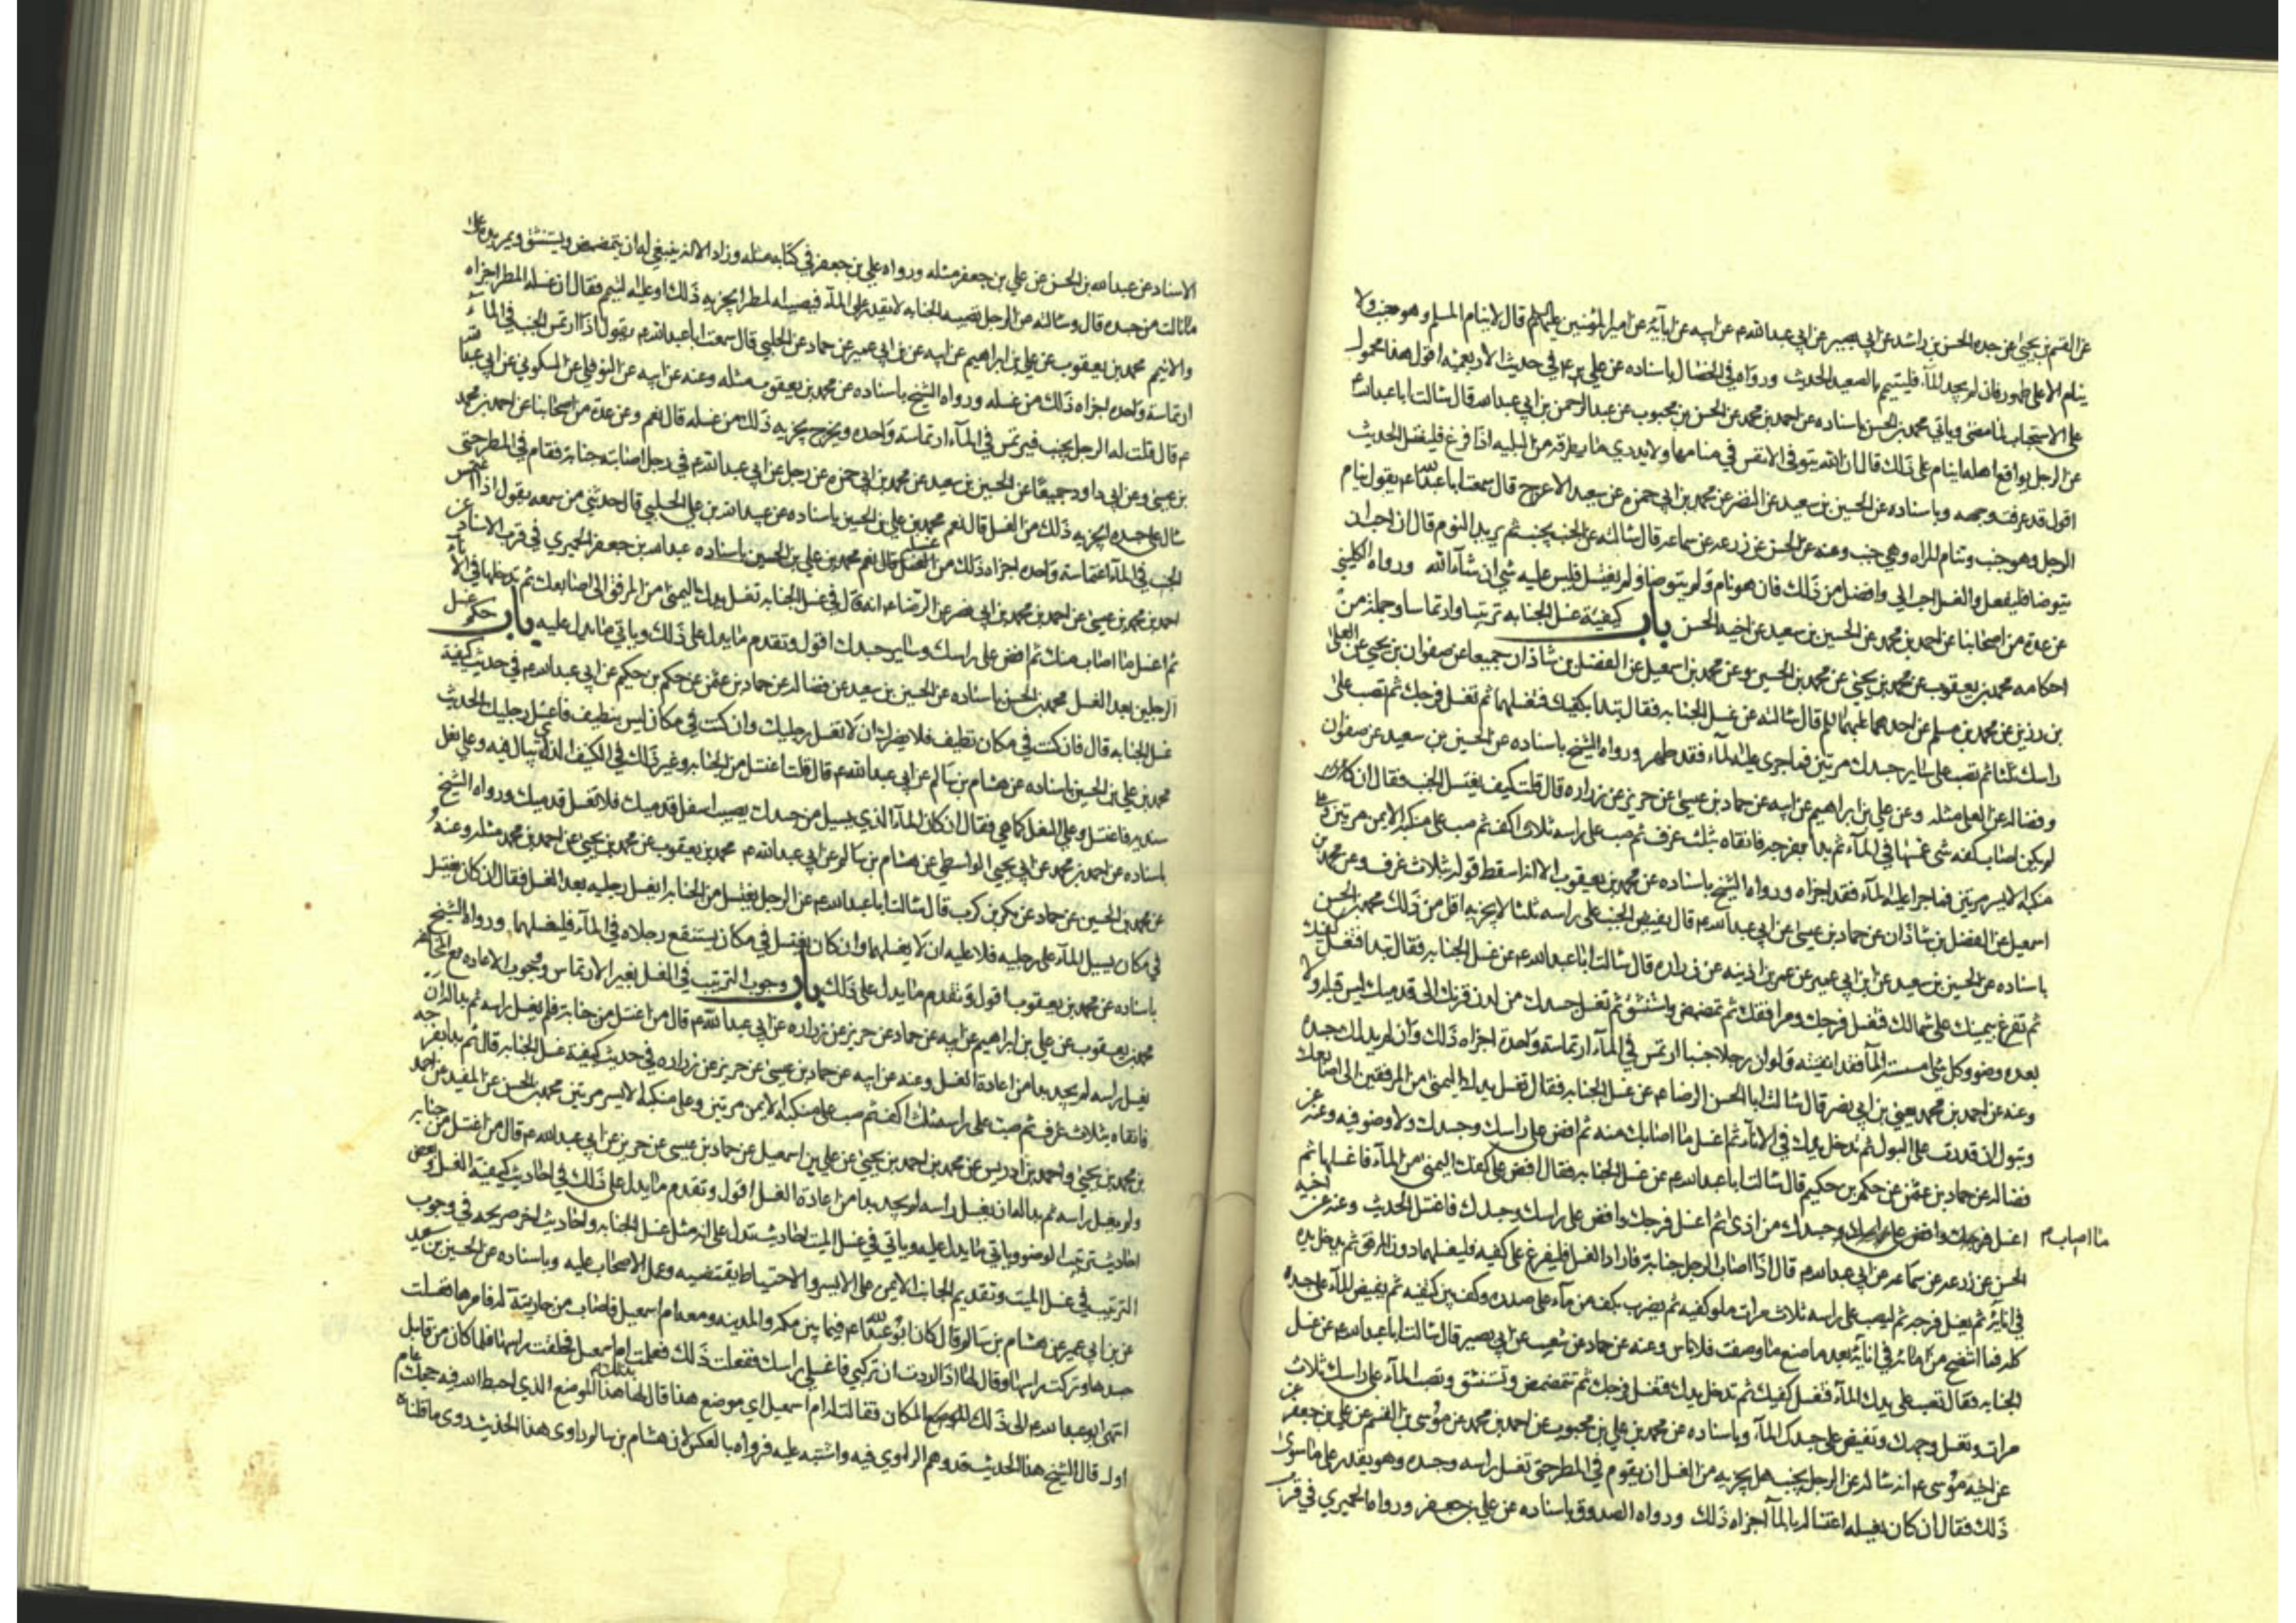 عن القسم بن يحيى عن جده الحسن بن راشد عن ابي بصير عن ابي عبدالله ع عن ابيه عن ابآئه عن امير المؤمنين عليهم السلم قال لا ينام المسلم وهو جنب ولا
ينام الا على طهور فان لم يجد المآء فليتيمم بالصعيد الحديث ورواه في الخصال باسناده عن علي ع في حديث الاربعمئه اقول هذا محمول
على الاستحباب لما مضى وياتي محمد بن الحسن باسناده عن احمد بن محمد عن الحسن بن محبوب عن عبد الرحمن بن ابي عبدالله قال سالت ابا عبدالله ع
عن الرجل يواقع اهله اينام على ذلك قال ان الله يتوفى الانفس في منامها ولا يدري ما يطرقه من البليه اذا فرغ فليغتسل الحديث
اقول قد عرفت وجهه وباسناده عن الحسين بن سعيد عن النضر عن محمد بن ابي حمزه عن سعيد الاعرج قال سمعت ابا عبدالله ع يقول ينام
الرجل وهو جنب وتنام المراه وهي جنب وعنه عن الحسن عن زرعه عن سماعه قال سالته عن الجنب يجنب ثم يريد النوم قال ان احب ان
يتوضا فليفعل والغسل احب الي وافضل من ذلك فان هو نام ولم يتوضا ولم يغتسل فليس عليه شئ ان شآء الله ورواه الكليني
عن عدة من اصحابنا عن احمد بن محمد عن الحسين بن سعيد عن اخيه الحسن باب كيفية غسل الجنابه ترتيبا وارتماسا وجملة من
احكامه محمد بن يعقوب عن محمد بن يحيى عن محمد بن الحسين وعن محمد بن اسمعيل عن الفضل بن شاذان جميعا عن صفوان بن يحيى عن العلا
بن رزين عن محمد بن مسلم عن احدهما عليهما السلم قال سالته عن غسل الجنابه فقال تبدا بكفيك فتغسلهما ثم تغسل فرجك ثم تصب على
راسك ثلثا ثم تصب على ساير جسدك مرتين فما جرى عليه المآء فقد طهر ورواه الشيخ باسناده عن الحسين بن سعيد عن صفوان
وفضاله عن العلى مثله وعن علي بن ابراهيم عن ابيه عن حماد بن عيسى عن حريز عن زراره قال قلت كيف يغتسل الجنب فقال ان
لم يكن اصاب كفه شئ غمسها في المآء ثم بدا بفرجه فانقاه بثلث غرف ثم صب على راسه ثلاث اكف ثم صب على منكبه الايمن مرتين وعلى
منكبه الايسر مرتين فما جرا عليه المآء فقد اجزاه ورواه الشيخ باسناده عن محمد بن يعقوب الا انه اسقط قوله ثلاث غرف وعن محمد بن
اسمعيل عن الفضل بن شاذان عن حماد بن عيسى عن ابي عبدالله ع قال يفيض الجنب على راسه ثلثا لا يجزيه اقل من ذلك محمد بن الحسن
باسناده عن الحسين بن سعيد عن ابن ابي عمير عن عمر بن اذينه عن زراره قال سالت ابا عبدالله ع عن غسل الجنابه فقال تبدا فتغسل كفيك
ثم تفرغ بيمينك على شمالك فتغسل فرجك ومرافقك ثم تمضمض واستنشق ثم تغسل جسدك من لدن قرنك الى قدميك ليس قبله ولا
بعده وضو وكل شئ امسسته المآ فقد انقيته ولو ان رجلا جنبا ارتمس في المآء ارتماسة واحدة اجزاه ذلك وان لم يدلك جسده
وعنه عن احمد بن محمد يعني بن ابي نصر قال سالت ابا الحسن الرضا ع عن غسل الجنابه فقال تغسل يدك اليمنى من المرفقين الى اصابعك
وتبول ان قدرت على البول ثم تدخل يدك في الانآء ثم اغسل ما اصابك منه ثم افض على راسك وجسدك ولا وضو فيه وعنه عن
فضاله عن حماد بن عثمن عن حكم بن حكيم قال سالت ابا عبدالله ع عن غسل الجنابه فقال افض على كفك اليمنى من المآء فاغسلها ثم
ما اصاب م
اغسل جسدك من اذى ثم اغسل فرجك وافض على راسك وجسدك فاغتسل الحديث وعنه عن اخيه
الحسن عن زرعه عن سماعه عن ابي عبدالله ع قال اذا اصاب الرجل جنابة فاراد الغسل فليفرغ على كفيه فليغسلهما دون المرفق ثم يدخل يده
في انائه ثم يغسل فرجه ثم ليصب على راسه ثلاث مرات ملو كفيه ثم يضرب بكف من مآء على صدره وكف بين كتفيه ثم يفيض المآء على جسده
كله فما انتضح من مائه في انائه بعد ما صنع ما وصفت فلا باس وعنه عن حماد عن شعيب عن ابي بصير قال سالت ابا عبدالله ع عن غسل
الجنابه فقال تصب على يدك المآء فتغسل كفيك ثم تدخل يدك فتغسل فرجك ثم تتمضمض وتستنشق وتصب المآء على راسك ثلاث
مرات وتغسل وجهك وتفيض على جسدك المآء وباسناده عن محمد بن علي بن محبوب عن احمد بن محمد عن موسى بن القسم عن علي بن جعفر عن
اخيه موسى ع انه ساله عن الرجل يجنب هل يجزيه من الغسل ان يقوم في المطر حتى تغسل راسه وجسده وهو يقدر على ما سوى
ذلك فقال ان كان يغسله اغتساله بالمآ اجزاه ذلك ورواه الصدوق باسناده عن علي بن جعفر ورواه الحميري في قرب
الاسناد عن عبدالله بن الحسن عن علي بن جعفر مثله ورواه علي بن جعفر في كتابه مثله وزاد الا انه ينبغي له ان يتمضمض ويستنشق ويمر يده على
ما نالت من جسده قال وسالته عن الرجل تصيبه الجنابه لا يقدر على المآء فيصيبه المطر ايجزيه ذلك او عليه التيمم فقال ان غسله المطر اجزاه
والا تيمم محمد بن يعقوب عن علي بن ابراهيم عن ابيه عن بن ابي عمير عن حماد عن الحلبي قال سمعت ابا عبدالله ع يقول اذا ارتمس الجنب في المآء
ارتماسة واحده اجزاه ذلك من غسله ورواه الشيخ باسناده عن محمد بن يعقوب مثله وعنه عن ابيه عن النوفلي عن السكوني عن ابي عبدالله
ع قال قلت له الرجل يجنب فيرتمس في المآء ارتماسة واحده ويخرج يجزيه ذلك من غسله قال نعم وعن عدة من اصحابنا عن احمد بن محمد
بن عيسى وعن ابي داود جميعا عن الحسين بن سعيد عن محمد بن ابي حمزه عن رجل عن ابي عبدالله ع في رجل اصابته جنابة فقام في المطر حتى
سال على جسده ايجزيه ذلك من الغسل قال نعم محمد بن علي بن الحسين باسناده عن عبيد الله بن علي الحلبي قال حدثني من سمعه يقول اذا اغتمس
الجنب في المآء اغتماسة واحده اجزاه ذلك من غسله عبدالله بن جعفر الحميري في قرب الاسناد عن
احمد بن محمد بن عيسى عن احمد بن محمد بن ابي نصر عن الرضا ع انه قال في غسل الجنابه تغسل يدك اليمنى من المرفق الى اصابعك ثم تدخلها في الانآء
ثم اغسل ما اصاب منك ثم افض على راسك وساير جسدك اقول وتقدم ما يدل على ذلك وياتي ما يدل عليه باب حكم غسل
الرجلين بعد الغسل محمد بن الحسن باسناده عن الحسين بن سعيد عن فضاله عن حماد بن عثمن عن حكم بن حكيم عن ابي عبدالله ع في حديث كيفية
غسل الجنابه قال فان كنت في مكان نظيف فلا يضرك ان لا تغسل رجليك وان كنت في مكان ليس بنظيف فاغسل رجليك الحديث
محمد بن علي بن الحسين باسناده عن هشام بن سالم عن ابي عبدالله ع قال قلت اغتسل من الجنابه وغير ذلك في الكنيف الذي يبال فيه وعلي نعل
سنديه فاغتسل وعلي النعل كما هي فقال ان كان المآء الذي يسيل من جسدك يصيب اسفل قدميك فلا تغسل قدميك ورواه الشيخ
باسناده عن احمد بن محمد عن ابي يحيى الواسطي عن هشام بن سالم عن ابي عبدالله ع محمد بن يعقوب عن محمد بن يحيى عن احمد بن محمد مثله وعنه
عن محمد بن الحسين عن حماد عن بكر بن كرب قال سالت ابا عبدالله ع عن الرجل يغتسل من الجنابه ايغسل رجليه بعد الغسل فقال ان كان يغتسل
في مكان يسيل المآء على رجليه فلا عليه ان لا يغسلهما وان كان يغتسل في مكان يستنقع رجلاه في المآء فليغسلهما ورواه الشيخ
باسناده عن محمد بن يعقوب اقول وتقدم ما يدل على ذلك باب وجوب الترتيب في الغسل بغير الارتماس ووجوب الاعاده مع المخالفه
محمد بن يعقوب عن علي بن ابراهيم عن ابيه عن حماد عن حريز عن زراره عن ابي عبدالله ع قال من اغتسل من جنابة فلم يغسل راسه ثم بدا له ان
يغسل راسه لم يجد بدا من اعادة الغسل وعنه عن ابيه عن حماد بن عيسى عن حريز عن زراره في حديث كيفية غسل الجنابه قال ثم بدا بفرجه
فانقاه بثلاث غرف ثم صب على راسه ثلث اكف ثم صب على منكبه الايمن مرتين وعلى منكبه الايسر مرتين محمد بن الحسن عن المفيد عن احمد
بن محمد بن يحيى واحمد بن ادريس عن محمد بن احمد بن يحيى عن علي بن اسمعيل عن حماد بن عيسى عن حريز عن ابي عبدالله ع قال من اغتسل من جنابه
ولم يغسل راسه ثم بدا له ان يغسل راسه لم يجد بدا من اعادة الغسل اقول وتقدم ما يدل على ذلك في احاديث كيفية الغسل وبعض
احاديث ترتيب الوضو وياتي ما يدل عليه وياتي في غسل الميت احاديث تدل على انه مثل غسل الجنابه واحاديث اخر صريحه في وجوب
الترتيب في غسل الميت وتقديم الجانب الايمن على الايسر والاحتياط يقتضيه وعمل الاصحاب عليه وباسناده عن الحسين بن سعيد
عن بن ابي عمير عن هشام بن سالم قال كان ابو عبدالله ع فيما بين مكه والمدينه ومعه ام اسمعيل فاصاب من جارية له فامرها فغسلت
جسدها وتركت راسها وقال لها اذا اردت ان تركبي فاغسلي راسك ففعلت ذلك فعلمت ام اسمعيل فحلقت راسها فلما كان من قابل
انتهى ابو عبدالله ع الى ذلك المكان فقالت له ام اسمعيل اي موضع هذا قال لها هذا الموضع الذي احبط الله فيه حجك عام
اول قال الشيخ هذا الحديث قد وهم الراوي فيه واشتبه عليه فرواه بالعكس لان هشام بن سالم راوي هذا الحديث روى ما قلناه